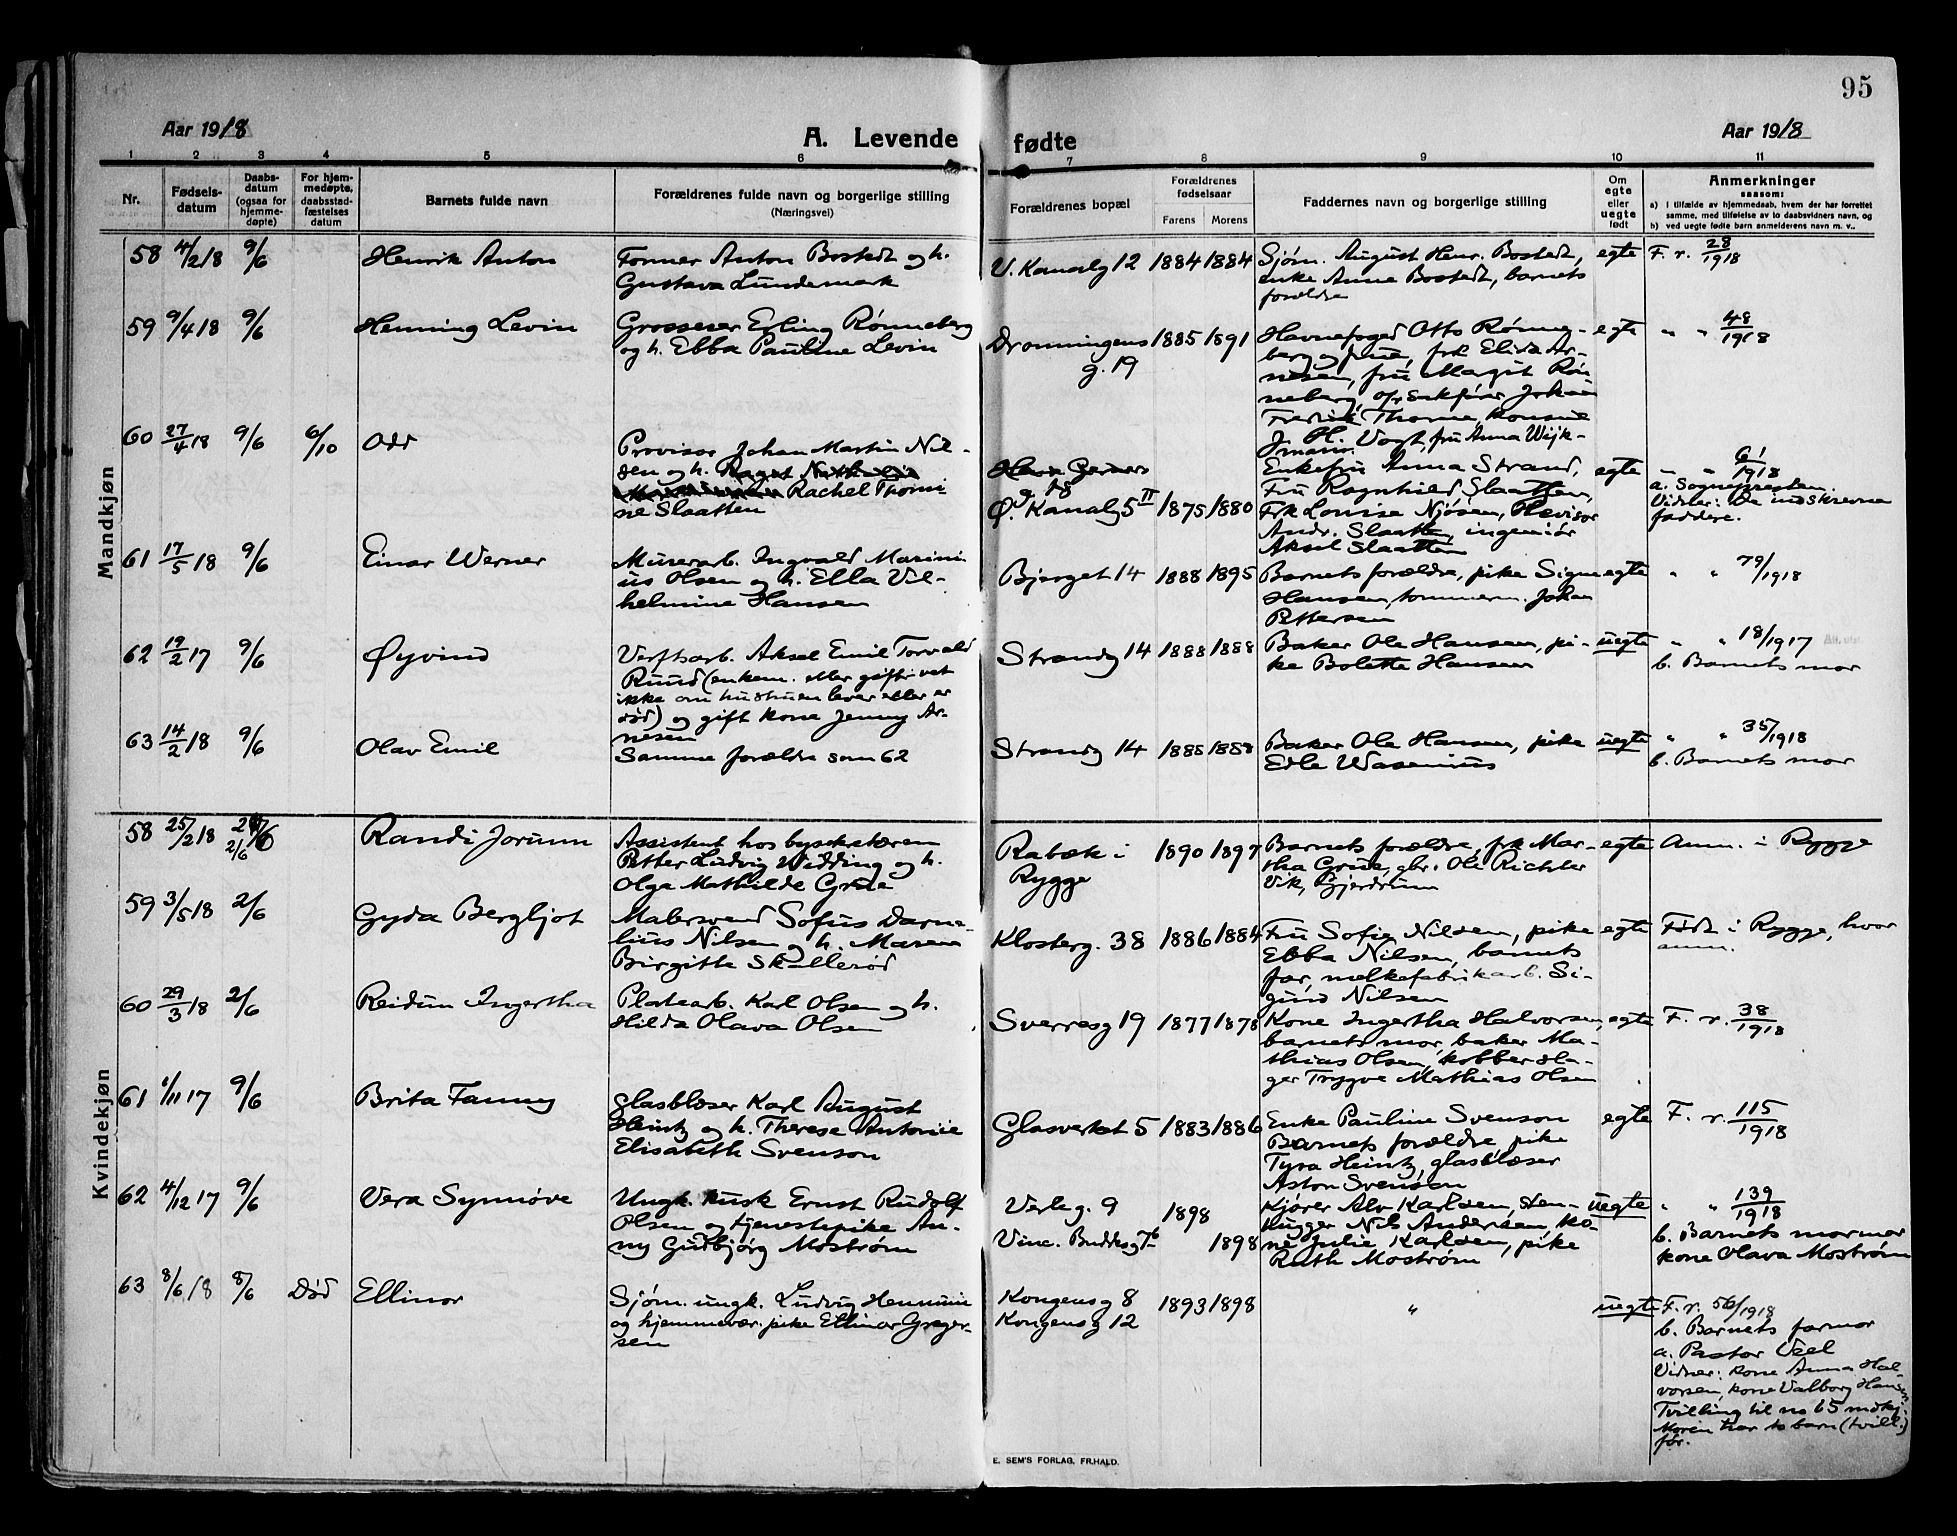 95
Aar 1918
A. Levende fødte
Aar 1918
1 2 3 4 5 6 7 8 9 10 11
Nr.
Fødsels-
datum
Daabs-
datum
(ogsaa for
hjemme-
døpte)
For hjem-
medøpte,
daabsstad-
fæstelses
datum
Barnets fulde navn
Forældrenes fulde navn og borgerlige stilling
(Næringsvei)
Forældrenes bopæl
Forældrenes
fødselsaar
Farens Morens
Faddernes navn og borgerlige stilling
Om
egte
eller
uegte
født
Anmerkninger
saasom:
a) i tilfælde av hjemmedaab, hvem der har forrettet
samme, med tilføielse av to daabsvidners navn, og
b) ved uegte fødte barn anmelderens navn m. v.,
Mandkjøn
58 4/2 18 9/6 Henrik Anton
Former Anton Bostedt og h.
Gustava Lundemark
V. Kanalg 12 1884 1884
Sjøm. August Henr. Bostedt,
enke Anne Bostedt, barnets
forældre
egte F. r. 28/1918
59 9/4 18 9/6 Henning Levin
Grosserer Erling Rønneberg
og h. Ebba Pauline Levin
Dronningens
g. 19
1885 1891
Havnefoged Otto Rønne-
berg og frue, frk Elida Ar-
nesen, fru Margit Røn-
neberg, ofr sakfører Johan
Fredrik Thorne, konsul
J. H. Vogt, fru Anna Wijk-
mann
egte " " 48/1918
60 27/4 18 9/6 6/10 Odd
Provisor Johan Martin Nil-
sen og h. Rachel Thomi-
ne Slaatten
Gerners
g. 18
Ø. Kanalg 5 II 1875 1880
Enkefru Anna Strand,
Fru Ragnhild Slaatten,
Frk Louise Njøsen, Revisor
Andr. Slaatten, ingeniør
Aksel Slaatten
egte " " 61/1918
a. Sognepresten.
Vidner: De indskrevne
faddere.
61 17/5 18 9/6 Einar Werner
Murerarb. Ingvald Marini-
us Olsen og h. Ella Vil-
helmine Hansen
Bjerget 14 1888 1895
Barnets forældre, pike Signe
Hansen, tømmerm. Johan
Pettersen
egte " " 79/1918
62 19/2 17 9/6 Øyvind
Verftsarb. Aksel Emil Torvald
Ruud (enkem. eller gift: vet
ikke om hustruen lever eller er
død) og gift kone Jenny Ar-
nesen
Strandg 14 1888 1888
Baker Ole Hansen, pi-
ke Bolette Hansen
uegte " " 18/1917
b. Barnets mor
63 14/2 18 9/6 Olav Emil
Samme forældre som 62
Strandg 14 1888 1888
Baker Ole Hansen, pike
Edle Wasenius
uegte " " 35/1918
b. Barnets mor
Kvindekjøn
58 25/2 18 2/6 Randi Jorunn
Assistent hos bysekretæren
Petter Ludvig Widding og h.
Olga Mathilde Grüe
Rabæk i
Rygge
1890 1897
Barnets forældre, frk Mar-
tha Grüe, gbr. Ole Richter
Vik, Bjerdrum
egte Anm. i Rygge
59 3/5 18 2/6 Gyda Bergljot
Malersvend Sofus Darne-
lius Nilsen og h. Maren
Birgitte Skallerød
Klosterg. 38 1886 1884
Fru Sofie Nilsen, pike
Ebba Nilsen, barnets
far, melkefabrikarb. Si-
gurd Nilsen
egte Født i Rygge, hvor
anm.
60 29/3 18 2/6 Reidun Ingertha
Platearb. Karl Olsen og h.
Hilda Olava Olsen
Sverresg 19 1877 1878
Kone Ingertha Halvorsen,
barnets mor, baker Ma-
thias Olsen, kobbersla-
ger Trygve Mathias Olsen
egte F. r. 38/1918
61 1/11 17 9/6 Brita Fanny
Glasblæser Karl August
Heintz og h. Therese Antonie
Elisabeth Svenson
Glasverket 5 1883 1886
Enke Pauline Svenson
Barnets forældre, pike
Tyra Heintz, glasblæser
Aston Svenson
egte F. r. 115/1918
62 4/12 17 9/6 Vera Synnøve
Ungk. kusk Ernst Rudolf
Olsen og tjenestepike An-
ny Gudbjørg Mostrøm
Verleg. 9 1898
Vinc. Buddesg 7b 1898
Kjører Alv Karlsen, sten-
hugger Nils Andersen, ko-
ne Julie Karlsen, pike
Ruth Mostrøm
uegte " " 139/1918
b. Barnets mormor
kone Olava Mostrøm
63 8/6 18 8/6 Død Ellinor
Sjøm. ungk. Ludvig Henninie
og hjemmevær. pike Ellinor Greger-
sen
Kongensg 8
Kongensg 12
1893 1898
"
uegte F. r. 56/1918
b. Barnets farmor
a. Pastor Veel
Vidner: kone Anna Hal-
vorsen, kone Valborg Hansen
Tvilling til no 65 mdkj.
Moren har to barn (tvill.)
før.
E. SEM'S FORLAG, FR.HALD.